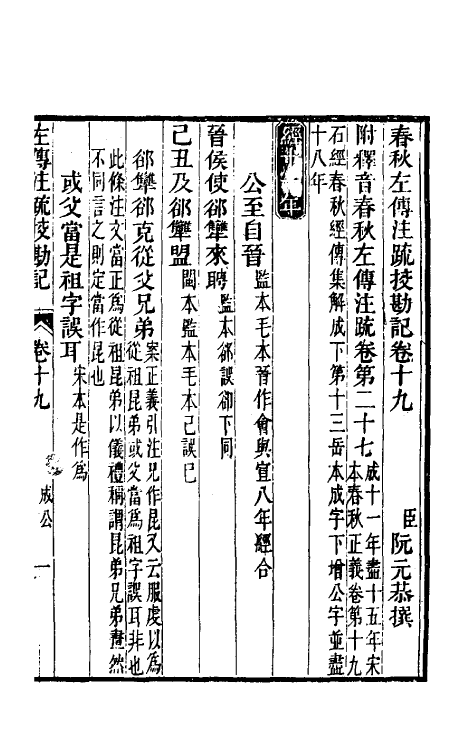 春秋左傳注疏挍勘記卷十九
臣阮元恭撰
附釋音春秋左傳注疏卷第二十七
成十一年盡十五年宋
本春秋正義卷第十九
石經春秋經傳集解成下第十三岳本成字下增公字並盡
十八年
經十一年
公至自晉
監本毛本晉作會與宣八年經合
晉侯使郤犫來聘
監本郤誤卻下同
己丑及郤犫盟
閩本監本毛本己誤巳
郤犫郤克從父兄弟
案正義引注兄作昆又云服虔以為
從祖昆弟或父當為祖字誤耳非也
此條注文當正爲從祖昆弟以儀禮稱謂昆弟兄弟畫然
不同言之則定當作昆也
或父當是祖字誤耳
宋本是作爲
左傳注疏挍勘記
卷十九
成公
一